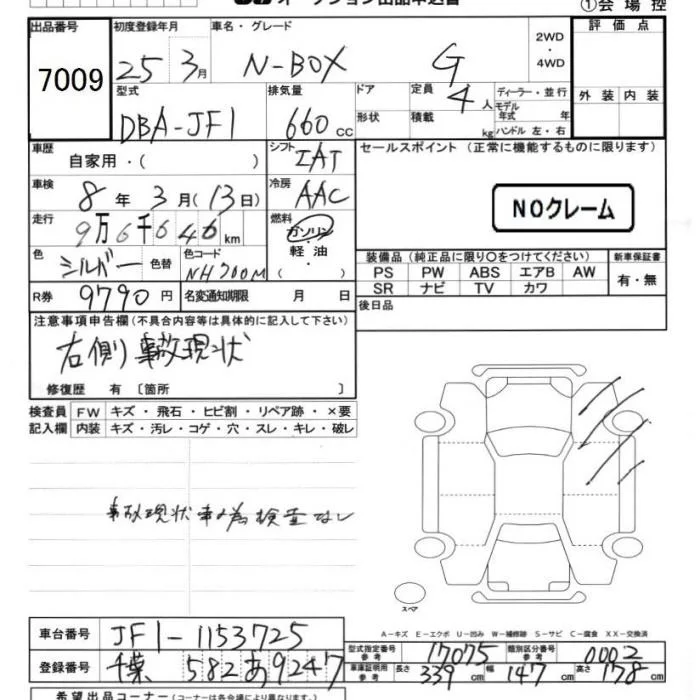 ①会場控
出品番号 初度登録年月 車名・グレード 2WD ・ 4WD 評価点
7009 25 3月 N-BOX G
型式 排気量 ドア 定員 4人 ディーラー・並行 外装 内装
DBA-JF1 660cc 形状 積載 kg モデル年式 年 ハンドル 左・右
車歴 自家用・( ) シフト IAT セールスポイント (正常に機能するものに限ります)
車検 8年 3月(13日) 冷房 AAC
NOクレーム
走行 9万6千646km 燃料 ガソリン 軽油
色 シルバー 色替 色コード NH700M ・( )
装備品 (純正品に限り○をつけてください) 新車保証書
PS PW ABS エアB AW 有・無
SR ナビ TV カワ
R券 9790円 名変通知期限 月 日 後日品
注意事項申告欄(不具合内容等は具体的に記入して下さい)
右側 事故現状
修復歴 有 〔箇所 〕
検査員 FW キズ・飛石・ヒビ割・リペア跡・×要
記入欄 内装 キズ・汚レ・コゲ・穴・スレ・キレ・破レ
事故現状車の為検査なし
スペア
A-キズ E-エクボ U-凹み W-補修跡 S-サビ C-腐食 XX-交換済
車台番号 JF1-1153725
型式指定番号 参考 17075 類別区分番号 参考 0002
登録番号 千葉 582 あ9247
車庫証明用 参考 長さ 339cm 幅 147cm 高さ 178cm
希望出品コーナー(コーナーは各会場により異なります。)